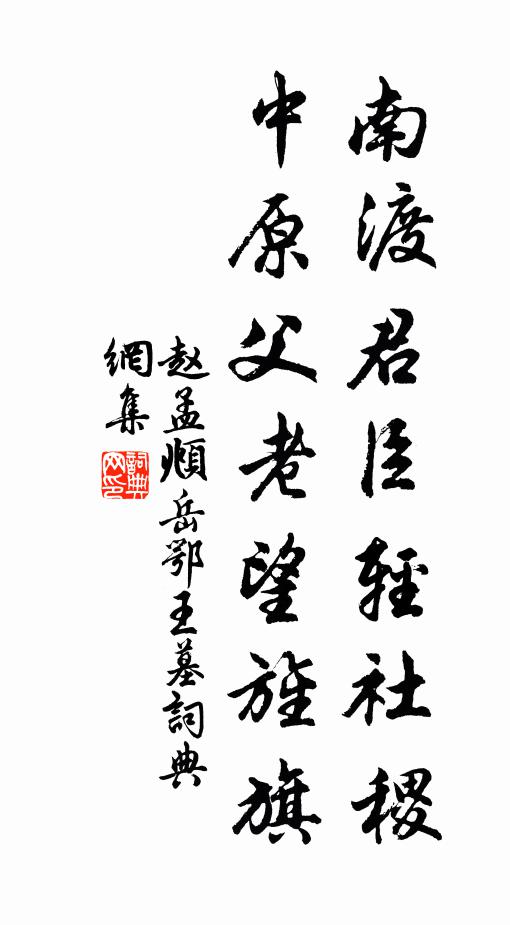 南渡君臣輕社稷
中原父老望旌旗
赵孟頫岳鄂王墓詞典
網集
詞典网印